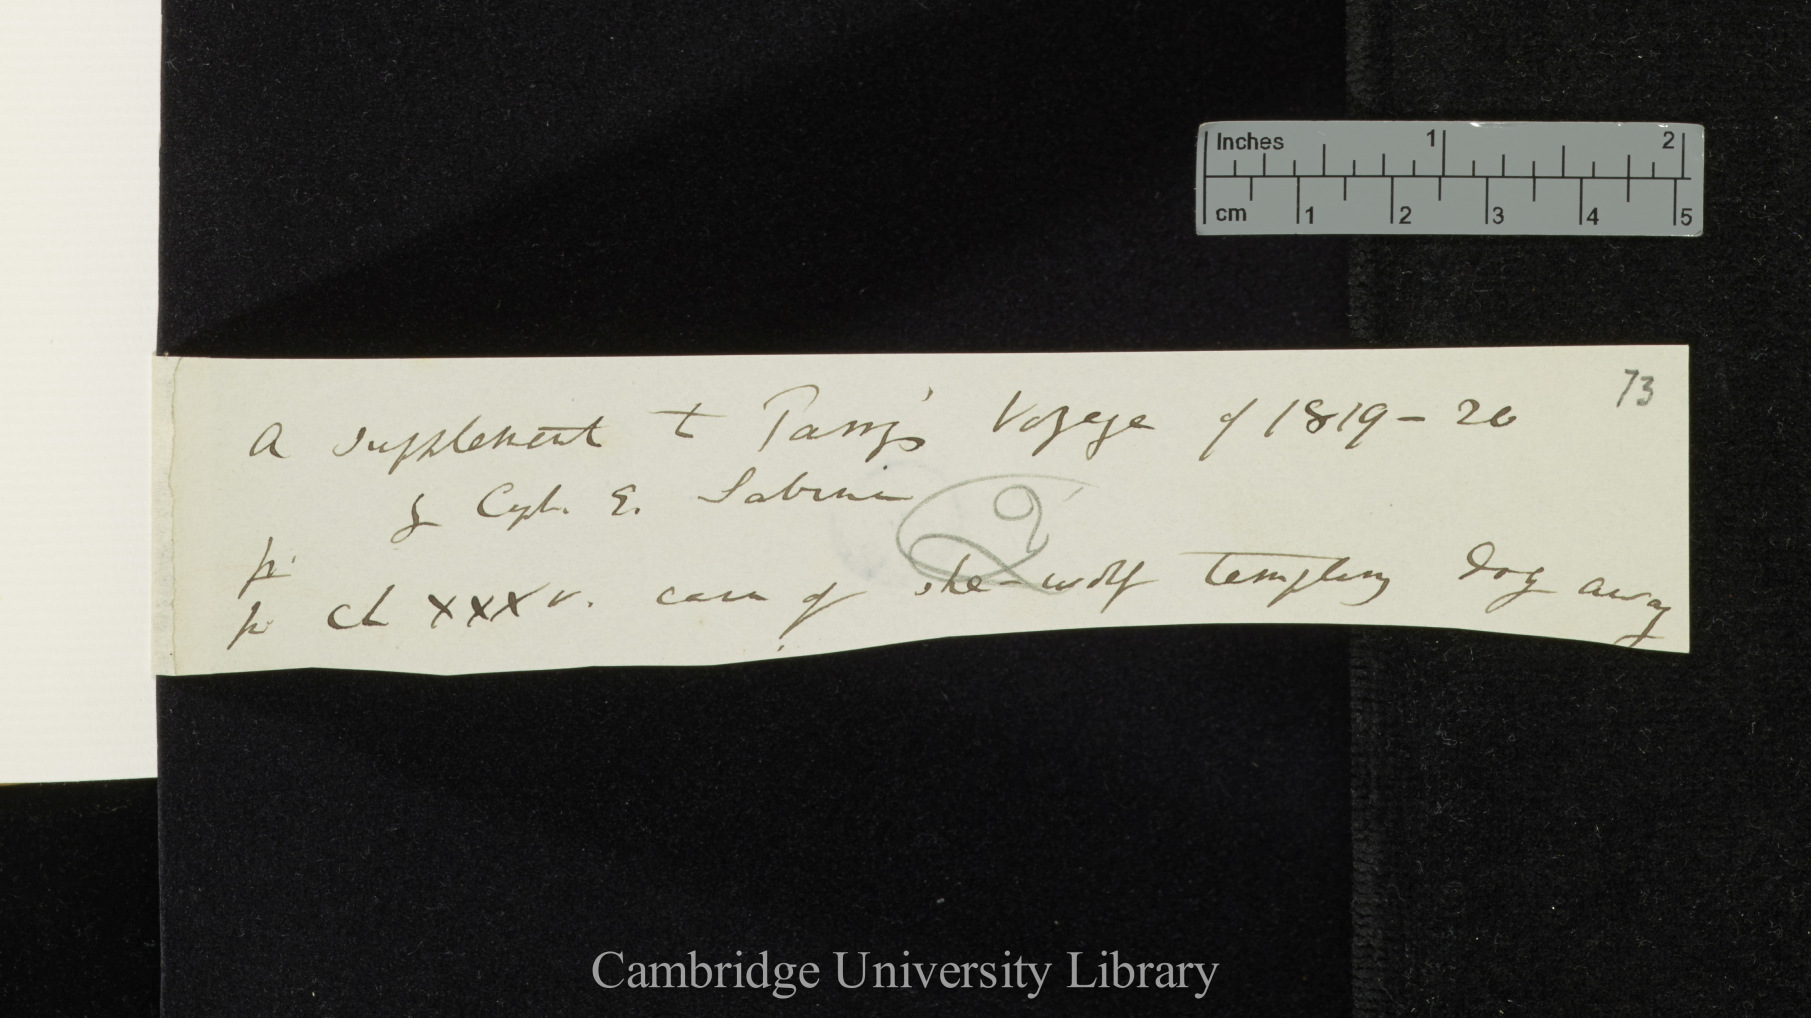 73
A supplement to Parry's Voyage of 1819–20
by Capt. E. Sabine
p.
p CLXXXV. case of she-wolf tempting dog away
Inches 1 2
cm 1 2 3 4 5
Cambridge University Library